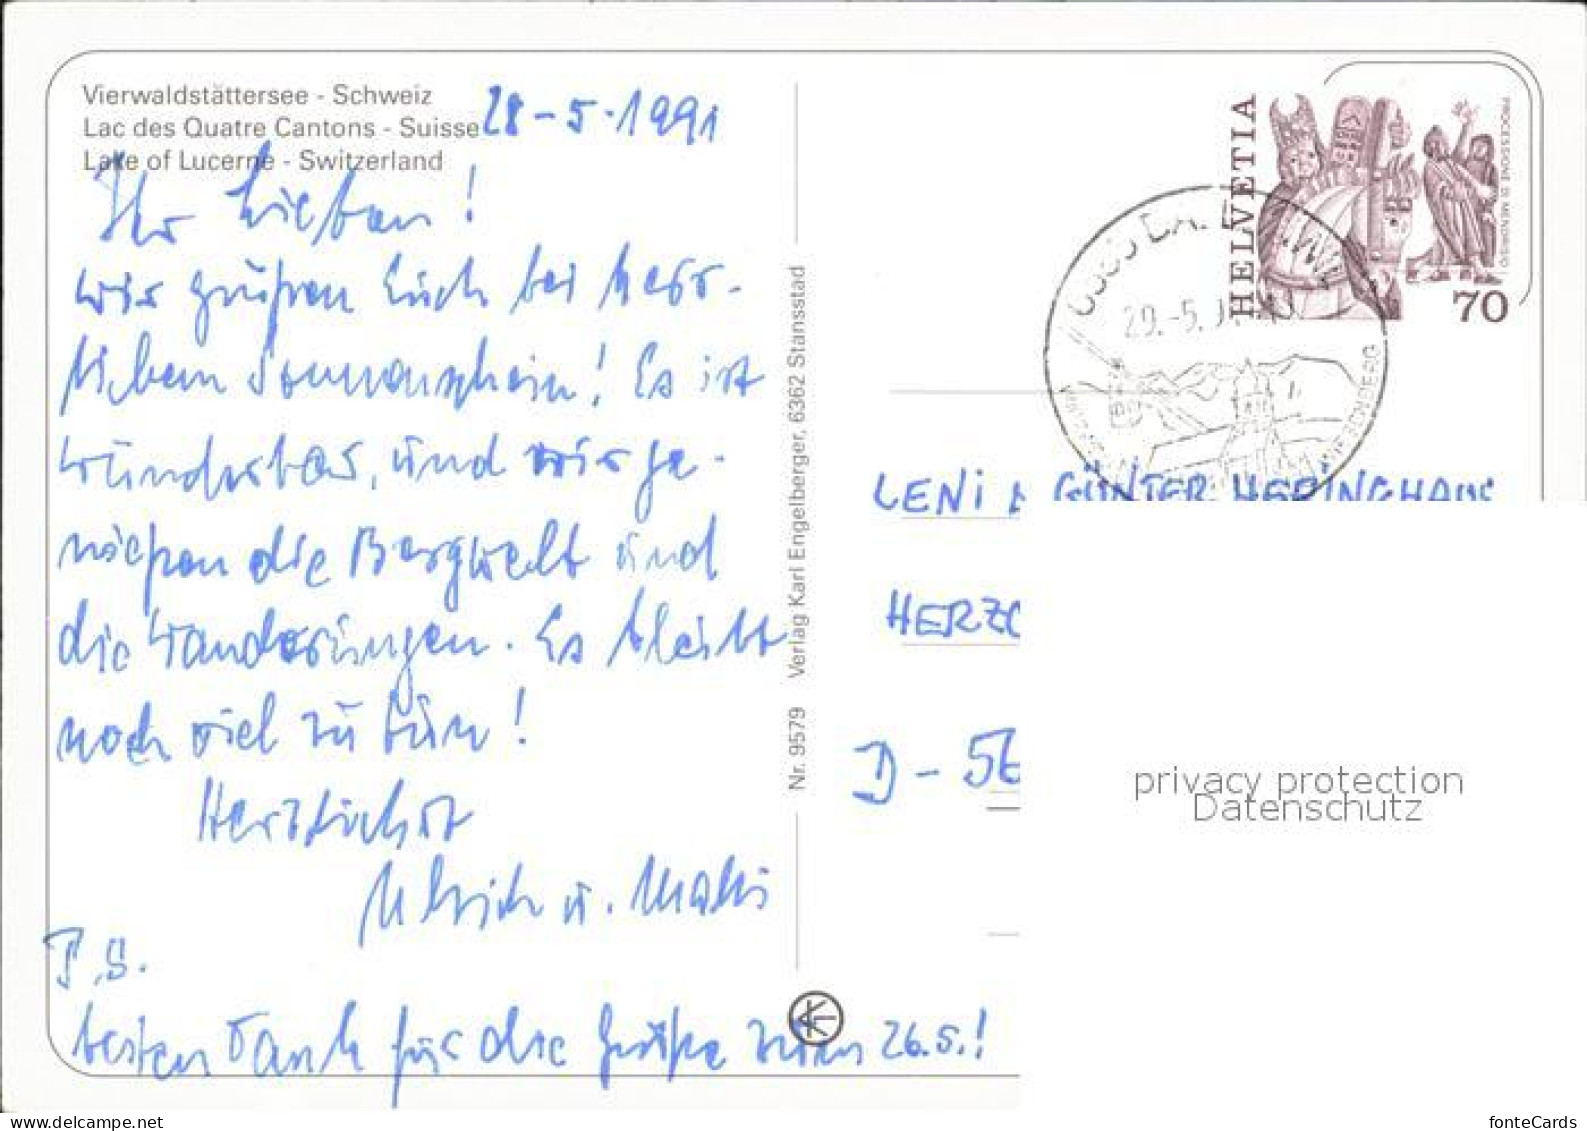 Vierwaldstättersee - Schweiz
Lac des Quatre Cantons - Suisse
Lake of Lucerne - Switzerland
28-5-1991
Ihr Lieben!
wir grüßen Euch bei herr-
lichem Sonnenschein! Es ist
wunderbar, und wir ge-
nießen die Bergwelt und
die Wanderungen. Es bleibt
noch viel zu tun!
Herzlichst
Ulrich u.
P.S.
besten Dank für die Grüße zum 26.5.!
Nr. 9579 Verlag Karl Engelberger, 6362 Stansstad
HELVETIA
PROCESSIONE DI MENDRISIO
70
29.-5.
LENI & GÜNTER HERINGHAUS
HERZO
D - 56
privacy protection
Datenschutz
www.delcampe.net
fonteCards